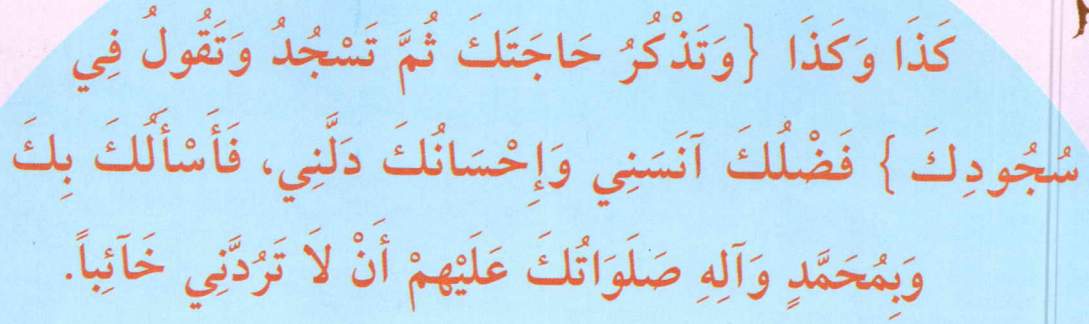 كَذَا وَكَذَا {وَتَذْكُرُ حَاجَتَكَ ثُمَّ تَسْجُدُ وَتَقُولُ فِي
سُجُودِكَ } فَضْلُكَ آنَسَنِي وَإِحْسَانُكَ دَلَّنِي، فَأَسْأَلُكَ بِكَ
وَبِمُحَمَّدٍ وَآلِهِ صَلَوَاتُكَ عَلَيْهِمْ أَنْ لَا تَرُدَّنِي خَآئِباً.